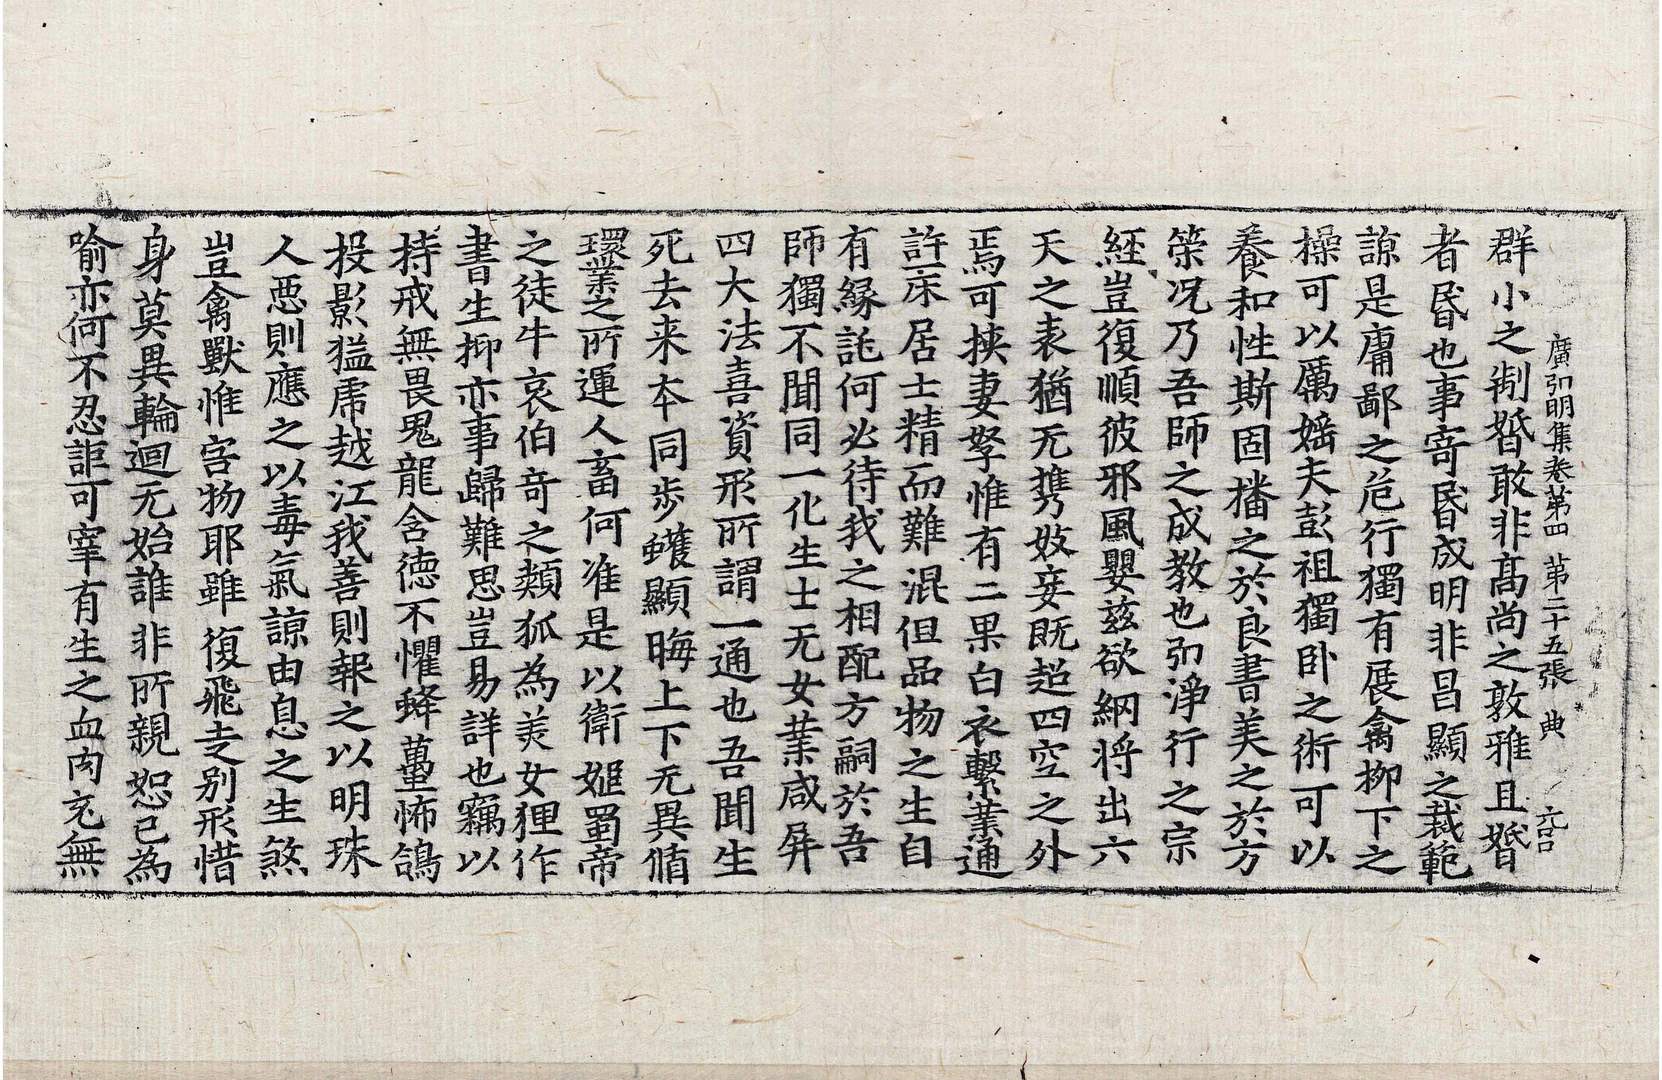 廣弘明集卷第四　第二十五張　典
群小之制婚敢非髙尚之敦雅且婚
者昬也事寄昬成明非昌顯之裁範
諒是庸鄙之危行獨有展禽柳下之
操可以厲婬夫彭祖獨卧之術可以
養和性斯固播之於良書美之於方
策況乃吾師之成教也弘淨行之宗
經豈復順彼邪風嬰兹欲網将出六
天之表猶无攜妓妾既超四空之外
焉可挟妻孥惟有二果白衣繫業通
許床居士精而難混但品物之生自
有縁託何必待我之相配方嗣於吾
師獨不聞同一化生士无女業咸屏
四大法喜資形所謂一通也吾聞生
死去来本同步蠖顯晦上下无異循
環業之所運人畜何准是以衛姬蜀帝
之徒牛哀伯竒之類狐為美女狸作
書生抑亦事歸難思豈易詳也竊以
持戒無畏鬼龍含徳不懼蜂蠆怖鴿
投影猛虎越江我善則報之以明珠
人惡則應之以毒氣諒由息之生煞
豈禽獸惟害物耶雖復飛走别形惜
身莫異輪迴无始誰非所親恕己為
喻亦何不忍詎可宰有生之血肉充無